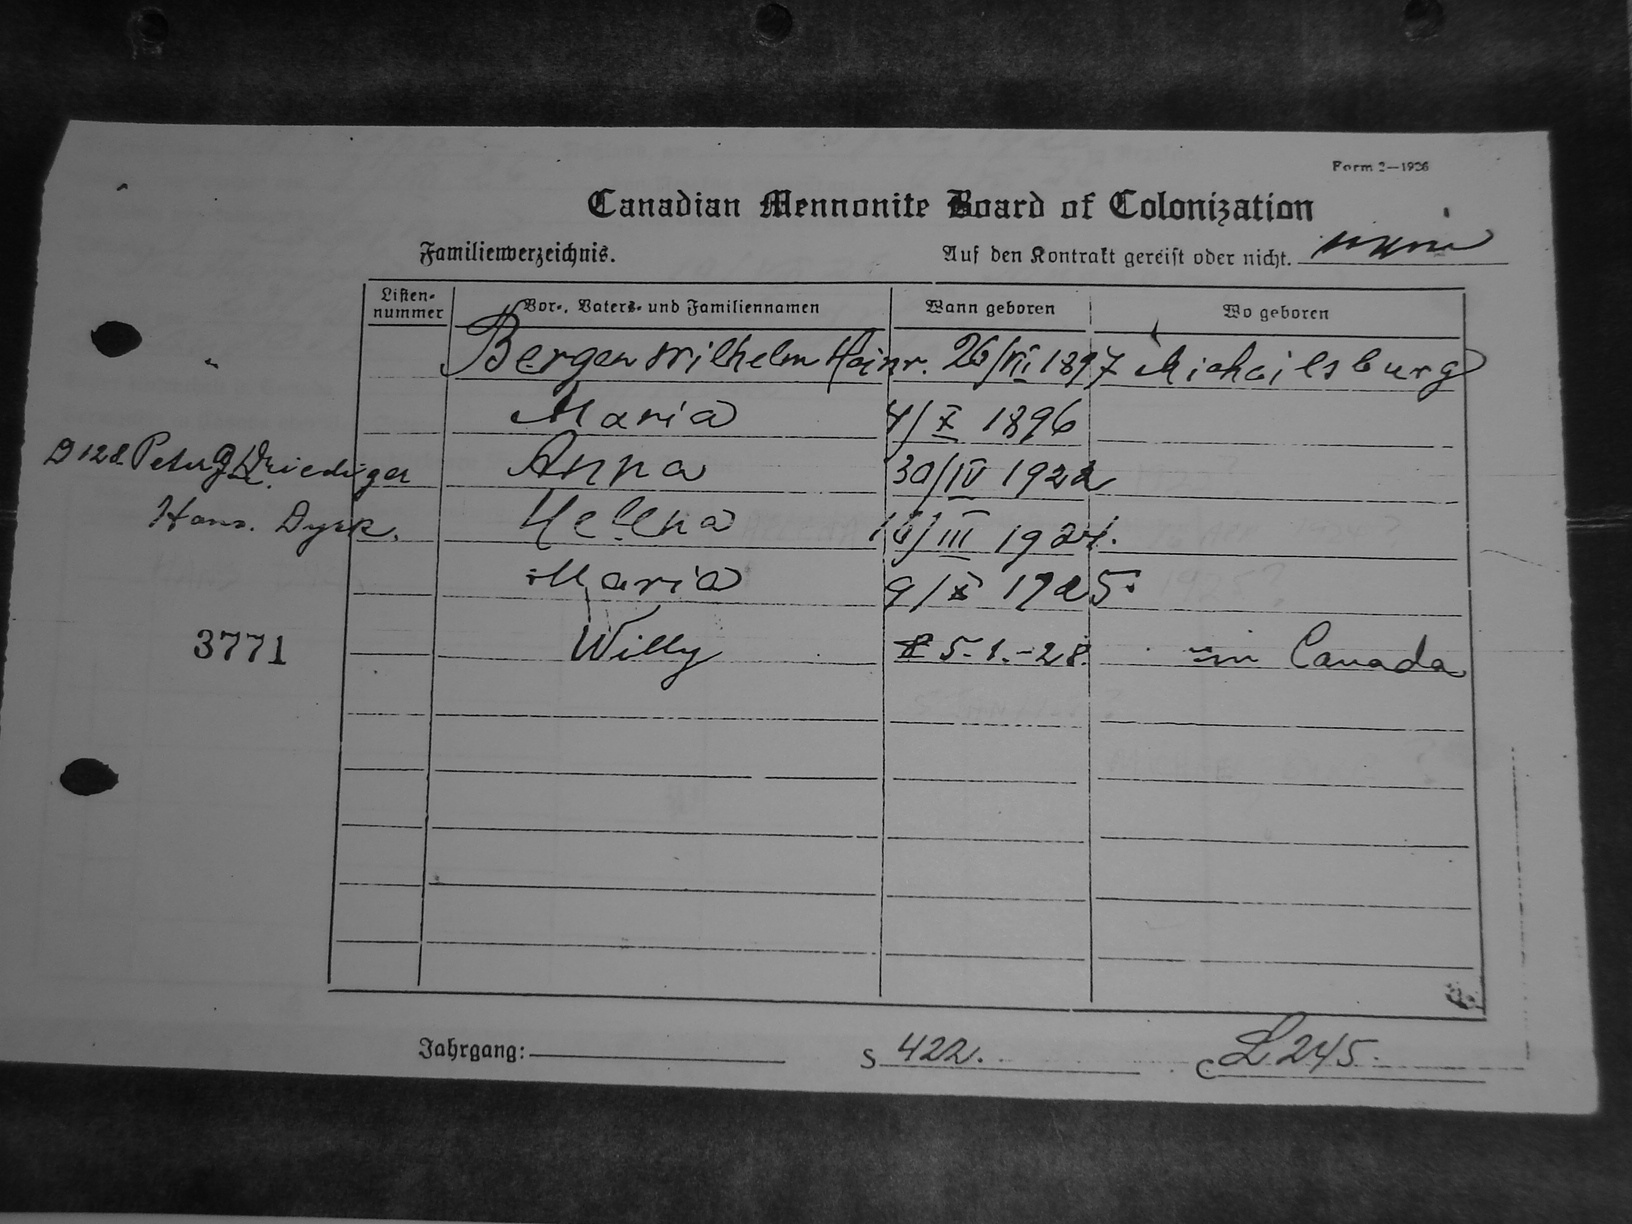 Form 2—1926
Canadian Mennonite Board of Colonization
Familienverzeichnis.
Auf den Kontrakt gereist oder nicht.
Listen-nummer Vor-, Vaters- und Familiennamen Wann geboren Wo geboren
Bergen Wilhelm Heinr. 26/VII 1897 Michailsburg
Maria 4/X 1896
Peter Driediger Anna 30/IV 1922
Hans. Dyck. Helena /III 1924.
Maria 9/X 1925.
3771 Willy 5.1.-28. in Canada
Jahrgang: S 422. C L 245.